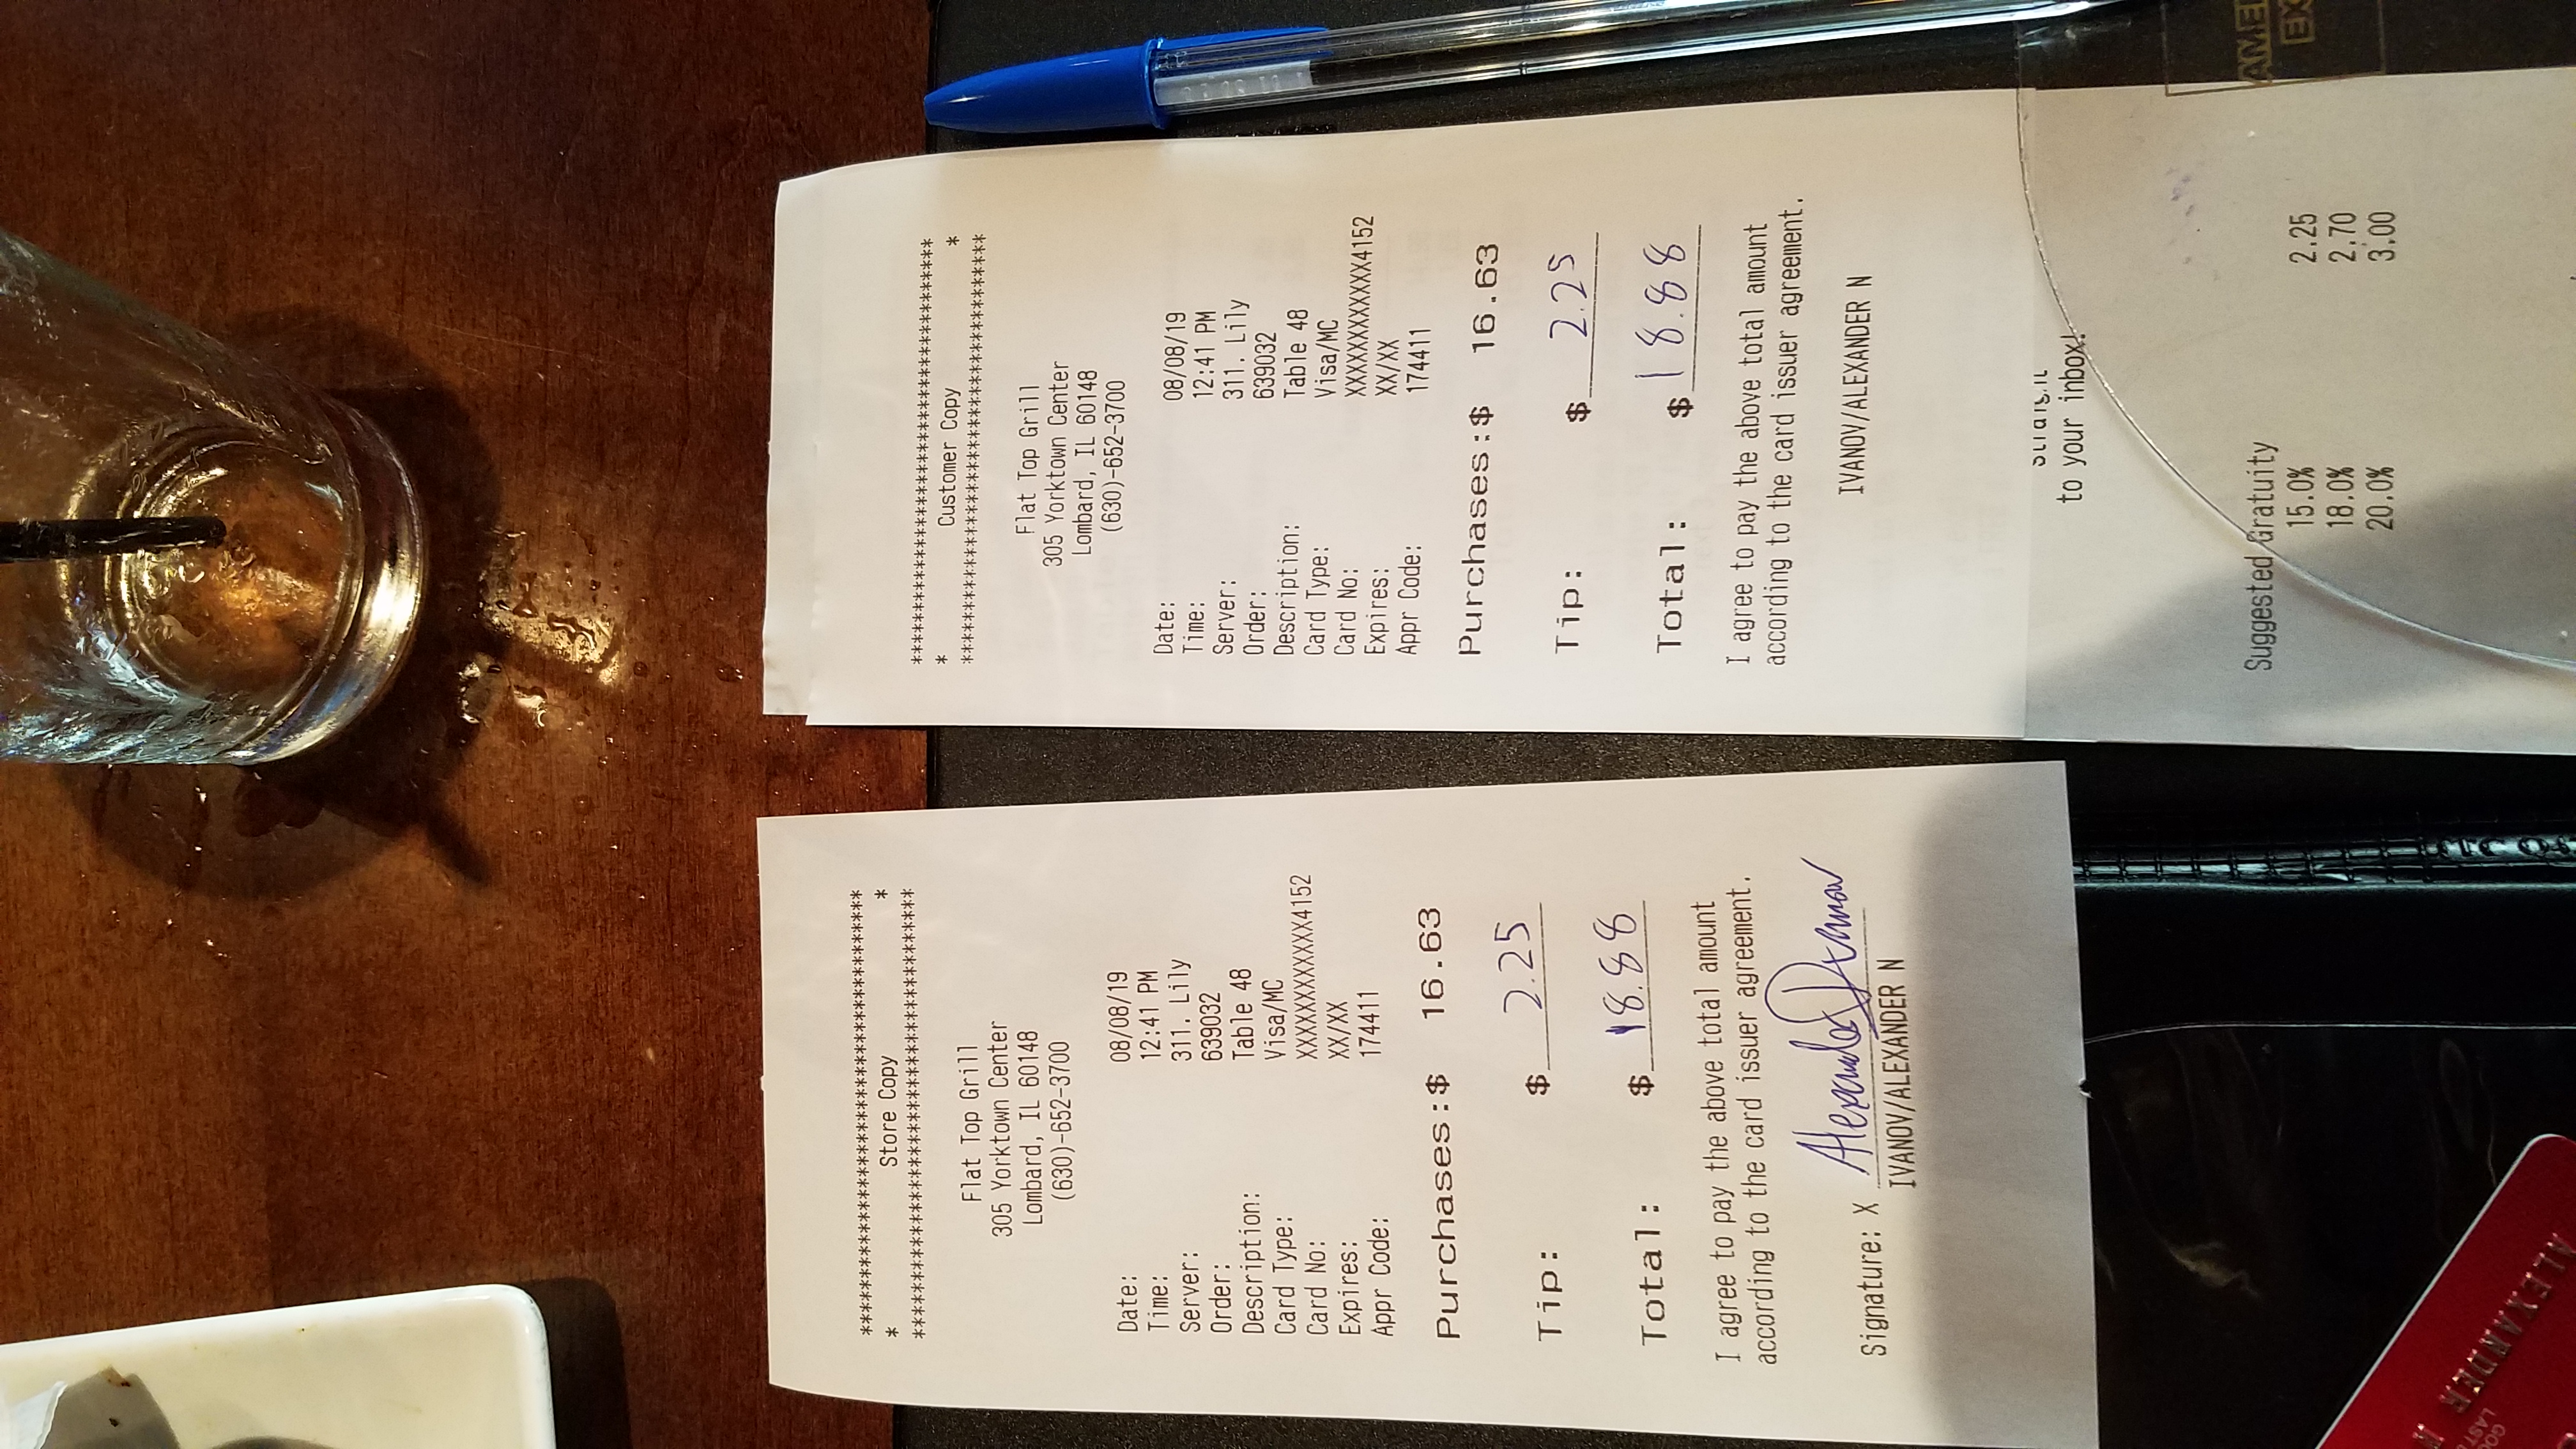 ****************************************
* Store Copy *
****************************************
Flat Top Grill
305 Yorktown Center
Lombard, IL 60148
(630)-652-3700
Date: 08/08/19
Time: 12:41 PM
Server: 311. Lily
Order: 639032
Description: Table 48
Card Type: Visa/MC
Card No: XXXXXXXXXXXX4152
Expires: XX/XX
Appr Code: 174411
Purchases:$ 16.63
Tip: $ 2.25
Total: $ 18.88
I agree to pay the above total amount
according to the card issuer agreement.
Signature: X Alexander Ivanov
IVANOV/ALEXANDER N
****************************************
* Customer Copy *
****************************************
Flat Top Grill
305 Yorktown Center
Lombard, IL 60148
(630)-652-3700
Date: 08/08/19
Time: 12:41 PM
Server: 311. Lily
Order: 639032
Description: Table 48
Card Type: Visa/MC
Card No: XXXXXXXXXXXX4152
Expires: XX/XX
Appr Code: 174411
Purchases:$ 16.63
Tip: $ 2.25
Total: $ 18.88
I agree to pay the above total amount
according to the card issuer agreement.
IVANOV/ALEXANDER N
to your inbox!
Suggested Gratuity
15.0% 2.25
18.0% 2.70
20.0% 3.00
AME
EX
ALEXANDER N